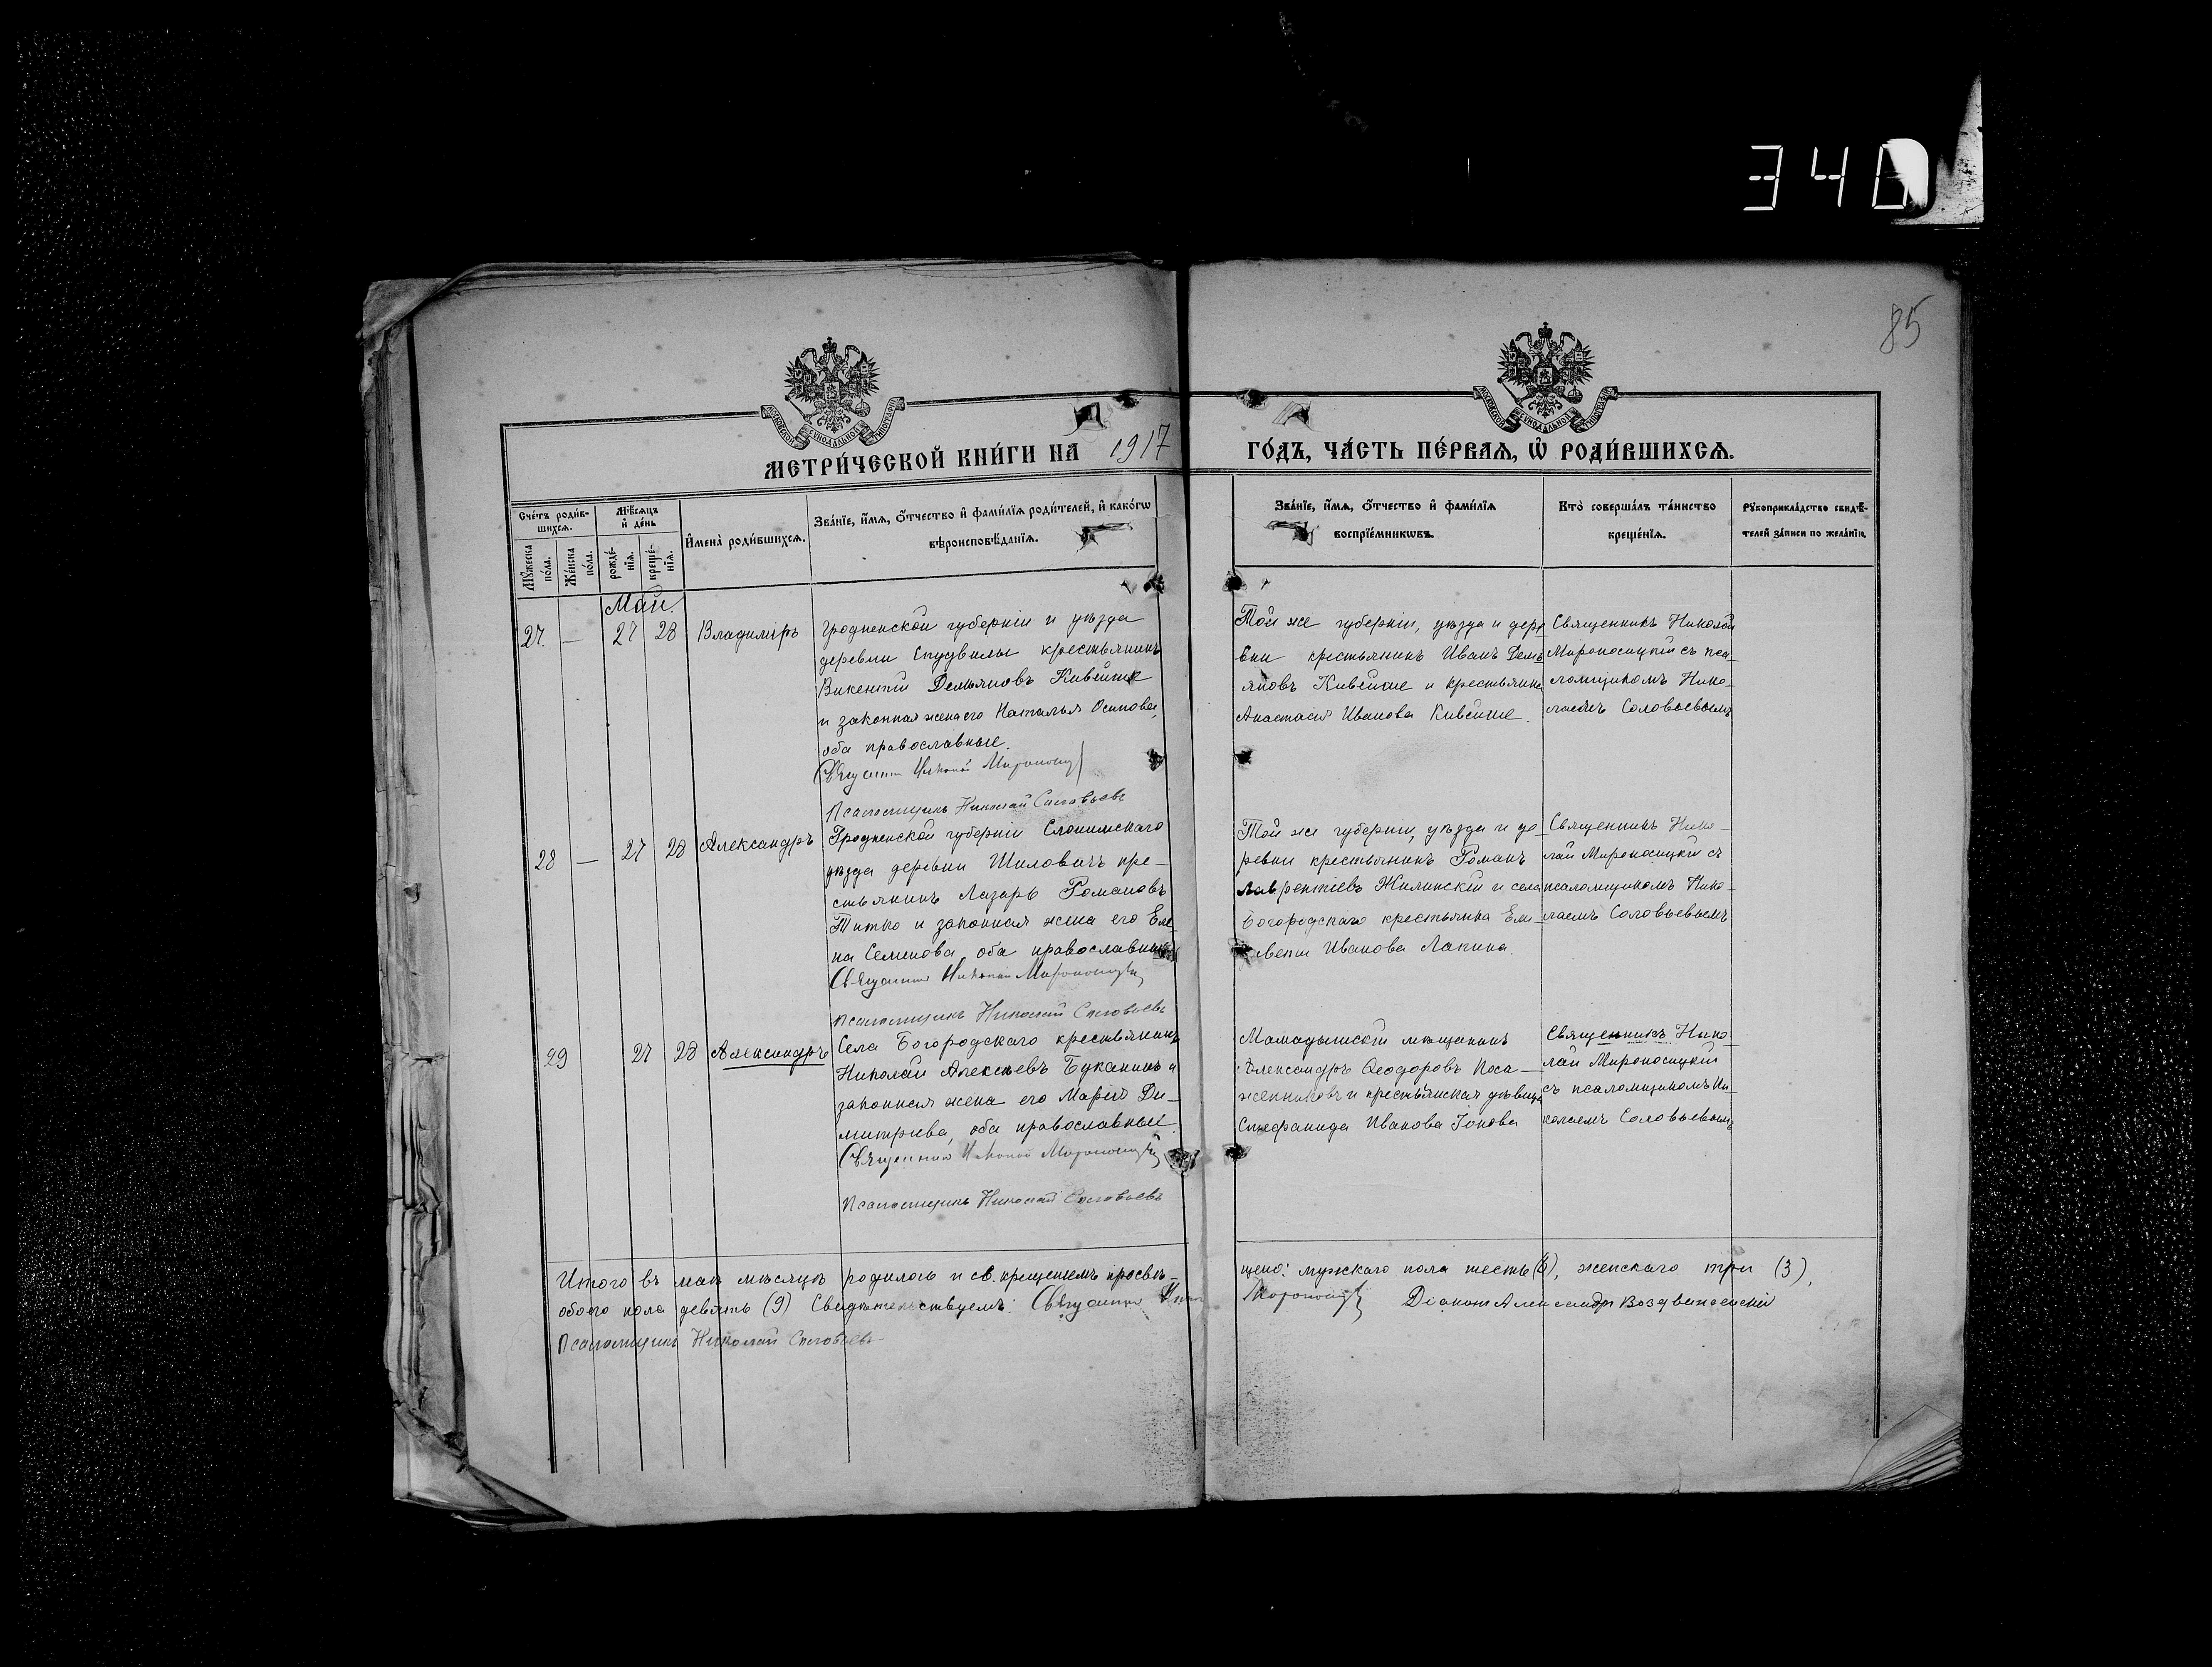 340
85
МЕТРИ́ЧЕСКОЙ КНИ́ГИ НА 1917 ГО́ДЪ, ЧА́СТЬ ПЕ́РВАѦ, Ѽ РОДИ́ВШИХСѦ.
Сче́тъ роди́в-
шихсѧ.
Мѣ́сѧцъ
и҆ де́нь
И҆мена̀ роди́вшихсѧ.
Зва́нїе, и҆́мѧ, ѻ҆́тчество и҆ фами́лїѧ роди́телей, и҆ како́гѡ
вѣроисповѣ́данїѧ.
Зва́нїе, и҆́мѧ, ѻ҆́тчество и҆ фами́лїѧ
воспрїе́мникѡвъ.
Кто̀ соверша́лъ та́инство
креще́нїѧ.
Рꙋкоприкла́дство свидѣ́-
телей за́писи по жела́нїю.
Мꙋ́жеска
по́ла.
Же́нска
по́ла.
рожде́-
нїѧ.
креще́-
нїѧ.
Май.
27. — 27 28 Владиміръ
Гродненской губерніи и уѣзда
деревни крестьянинъ
Викентій Демьяновъ
и законная жена его Наталья Осипова,
оба православные.
Священник Николай Мироносиц
Псаломщикъ Николай Соловьевъ
Той же губерніи, уѣзда и дере-
вни крестьянинъ Иванъ Демь-
яновъ и крестьянка
Анастасія Иванова
Священникъ Николай
Мироносицкій съ пса-
ломщикомъ Нико-
лаемъ Соловьевымъ
28 — 27 28 Александръ
Гродненской губерніи Слонимскаго
уѣзда деревни Шиловичъ кре-
стьянинъ Лазарь Романовъ
Титко и законная жена его Еле-
на Семенова, оба православные
Священник Николай Мироносицкій
Псаломщикъ Николай Соловьевъ
Той же губерніи, уѣзда и де-
ревни крестьянинъ Романъ
Лаврентіевъ Жилинскій и села
Богородскаго крестьянка Ели-
Иванова Лапина
Священникъ Нико-
лай Мироносицкій съ
псаломщикомъ Нико-
лаемъ Соловьевымъ
29 27 28 Александръ
Села Богородскаго крестьянинъ
Николай Алексѣевъ Буканинъ и
законная жена его Марія Ди-
митріева, оба православные.
Священник Николай Мироносицкій
Псаломщикъ Николай Соловьевъ
Мамадышскій мѣщанинъ
Александръ Ѳеодоровъ Поса-
женниковъ и крестьянская дѣвица
Стефанида Иванова Іонова
Священникъ Нико-
лай Мироносицкій
съ псаломщикомъ Ни-
колаемъ Соловьевымъ
Итого въ маѣ мѣсяцѣ родилось и св. крещеніемъ просвѣ-
щено: мужскаго пола шесть (6), женскаго три (3),
обоего пола девять (9) Свидѣтельствуемъ: Священник Ник
Мироносицкій Діаконъ Александръ Воздвиженскій
Псаломщикъ Николай Соловьевъ